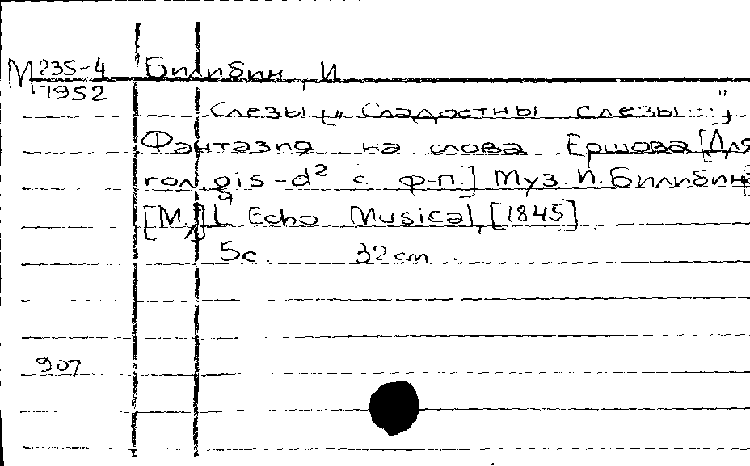 М 235-4 Билибин, И.
1952
Слезы ["Сладостны слезы..."]
Фантазия на слова Ершова [Для
гол. gis-d² с ф-п.] Муз. И. Билибин
[М.,] L'Echo Musical, [1845]
5с. 32 cm
907